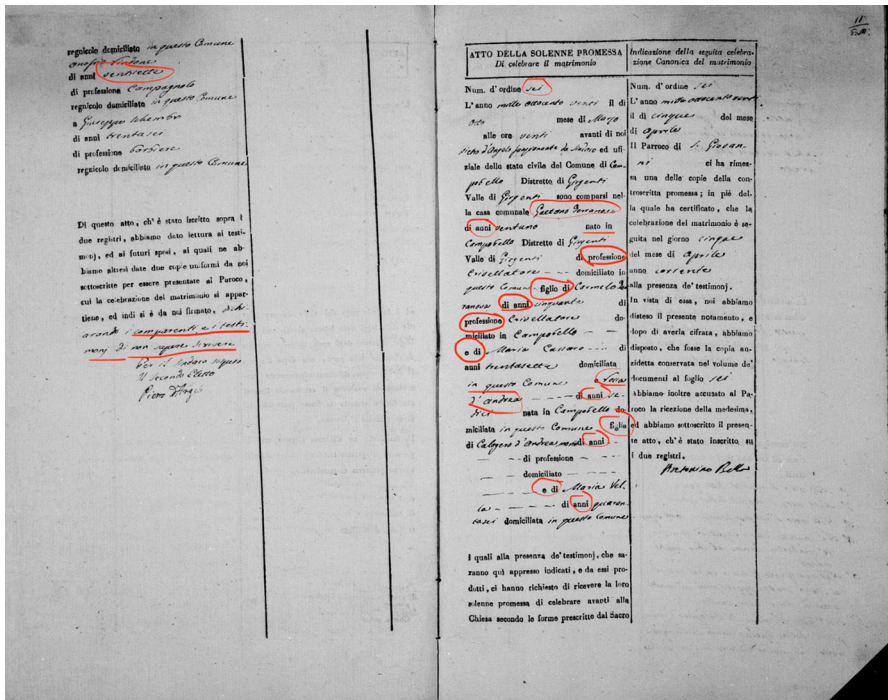 regnicolo domiciliato in questo Comune
di anni ventisette
di professione Campagnolo
regnicolo domiciliato in questo Comune
a Giuseppe Schembri
di anni trentasei
di professione barbiere
regnicolo domiciliato in questo Comune
Di questo atto, ch'è stato iscritto sopra i
due registri, abbiamo dato lettura ai testi-
monj, ed ai futuri sposi, ai quali ne ab-
biamo altresì date due copie uniformi da noi
sottoscritte per essere presentate al Paroco,
cui la celebrazione del matrimonio si appar-
tiene, ed indi si è da noi firmato, dichi
arando i comparenti e i testi
monj di non sapere scrivere
Per il Sindaco
Il Secondo Eletto
Pietro D'Angelo
ATTO DELLA SOLENNE PROMESSA
Di celebrare il matrimonio
Num. d'ordine sei
L'anno mille ottocento venti il di
otto mese di Marzo
alle ore venti avanti di noi
Pietro d'Angelo ed ufi-
ziale dello stato civile del Comune di Cam
pobello Distretto di Girgenti
Valle di Girgenti sono comparsi nel-
la casa comunale Gaetano
di anni ventuno nato in
Campobello Distretto di Girgenti
Valle di Girgenti di professione
Crivellatore domiciliato in
questo Comune figlio di Carmelo
di anni cinquanta di
professione Crivellatore do-
miciliato in Campobello
e di Maria di
anni trentasette domiciliata
in questo Comune e Rosa
d'Andrea di anni se-
dici nata in Campobello do-
miciliata in questo Comune figlia
di Calogero d'Andrea di anni
di professione
domiciliato
e di Maria Vel-
la di anni quaran
tasei domiciliata in questo Comune
I quali alla presenza de' testimonj, che sa-
ranno qui appresso indicati, e da essi pro-
dotti, ci hanno richiesto di ricevere la loro
solenne promessa di celebrare avanti alla
Chiesa secondo le forme prescritte dal Sacro
Indicazione della seguita celebra-
zione Canonica del matrimonio
Num. d'ordine sei
L'anno mille ottocento venti
il di cinque del mese
di aprile
Il Parroco di S. Giovan
ni ci ha rimes-
sa una delle copie della con-
troscritta promessa; in piè del-
la quale ha certificato, che la
celebrazione del matrimonio è se-
guita nel giorno cinque
del mese di aprile
anno corrente
alla presenza de' testimonj.
In vista di essa, noi abbiamo
disteso il presente notamento, e
dopo di averla cifrata, abbiamo
disposto, che fosse la copia an-
zidetta conservata nel volume de'
documenti al foglio sei
Abbiamo inoltre accusato al Pa-
roco la ricezione della medesima,
ed abbiamo sottoscritto il presen-
te atto, ch'è stato inscritto su
i due registri.
Antonino Bella